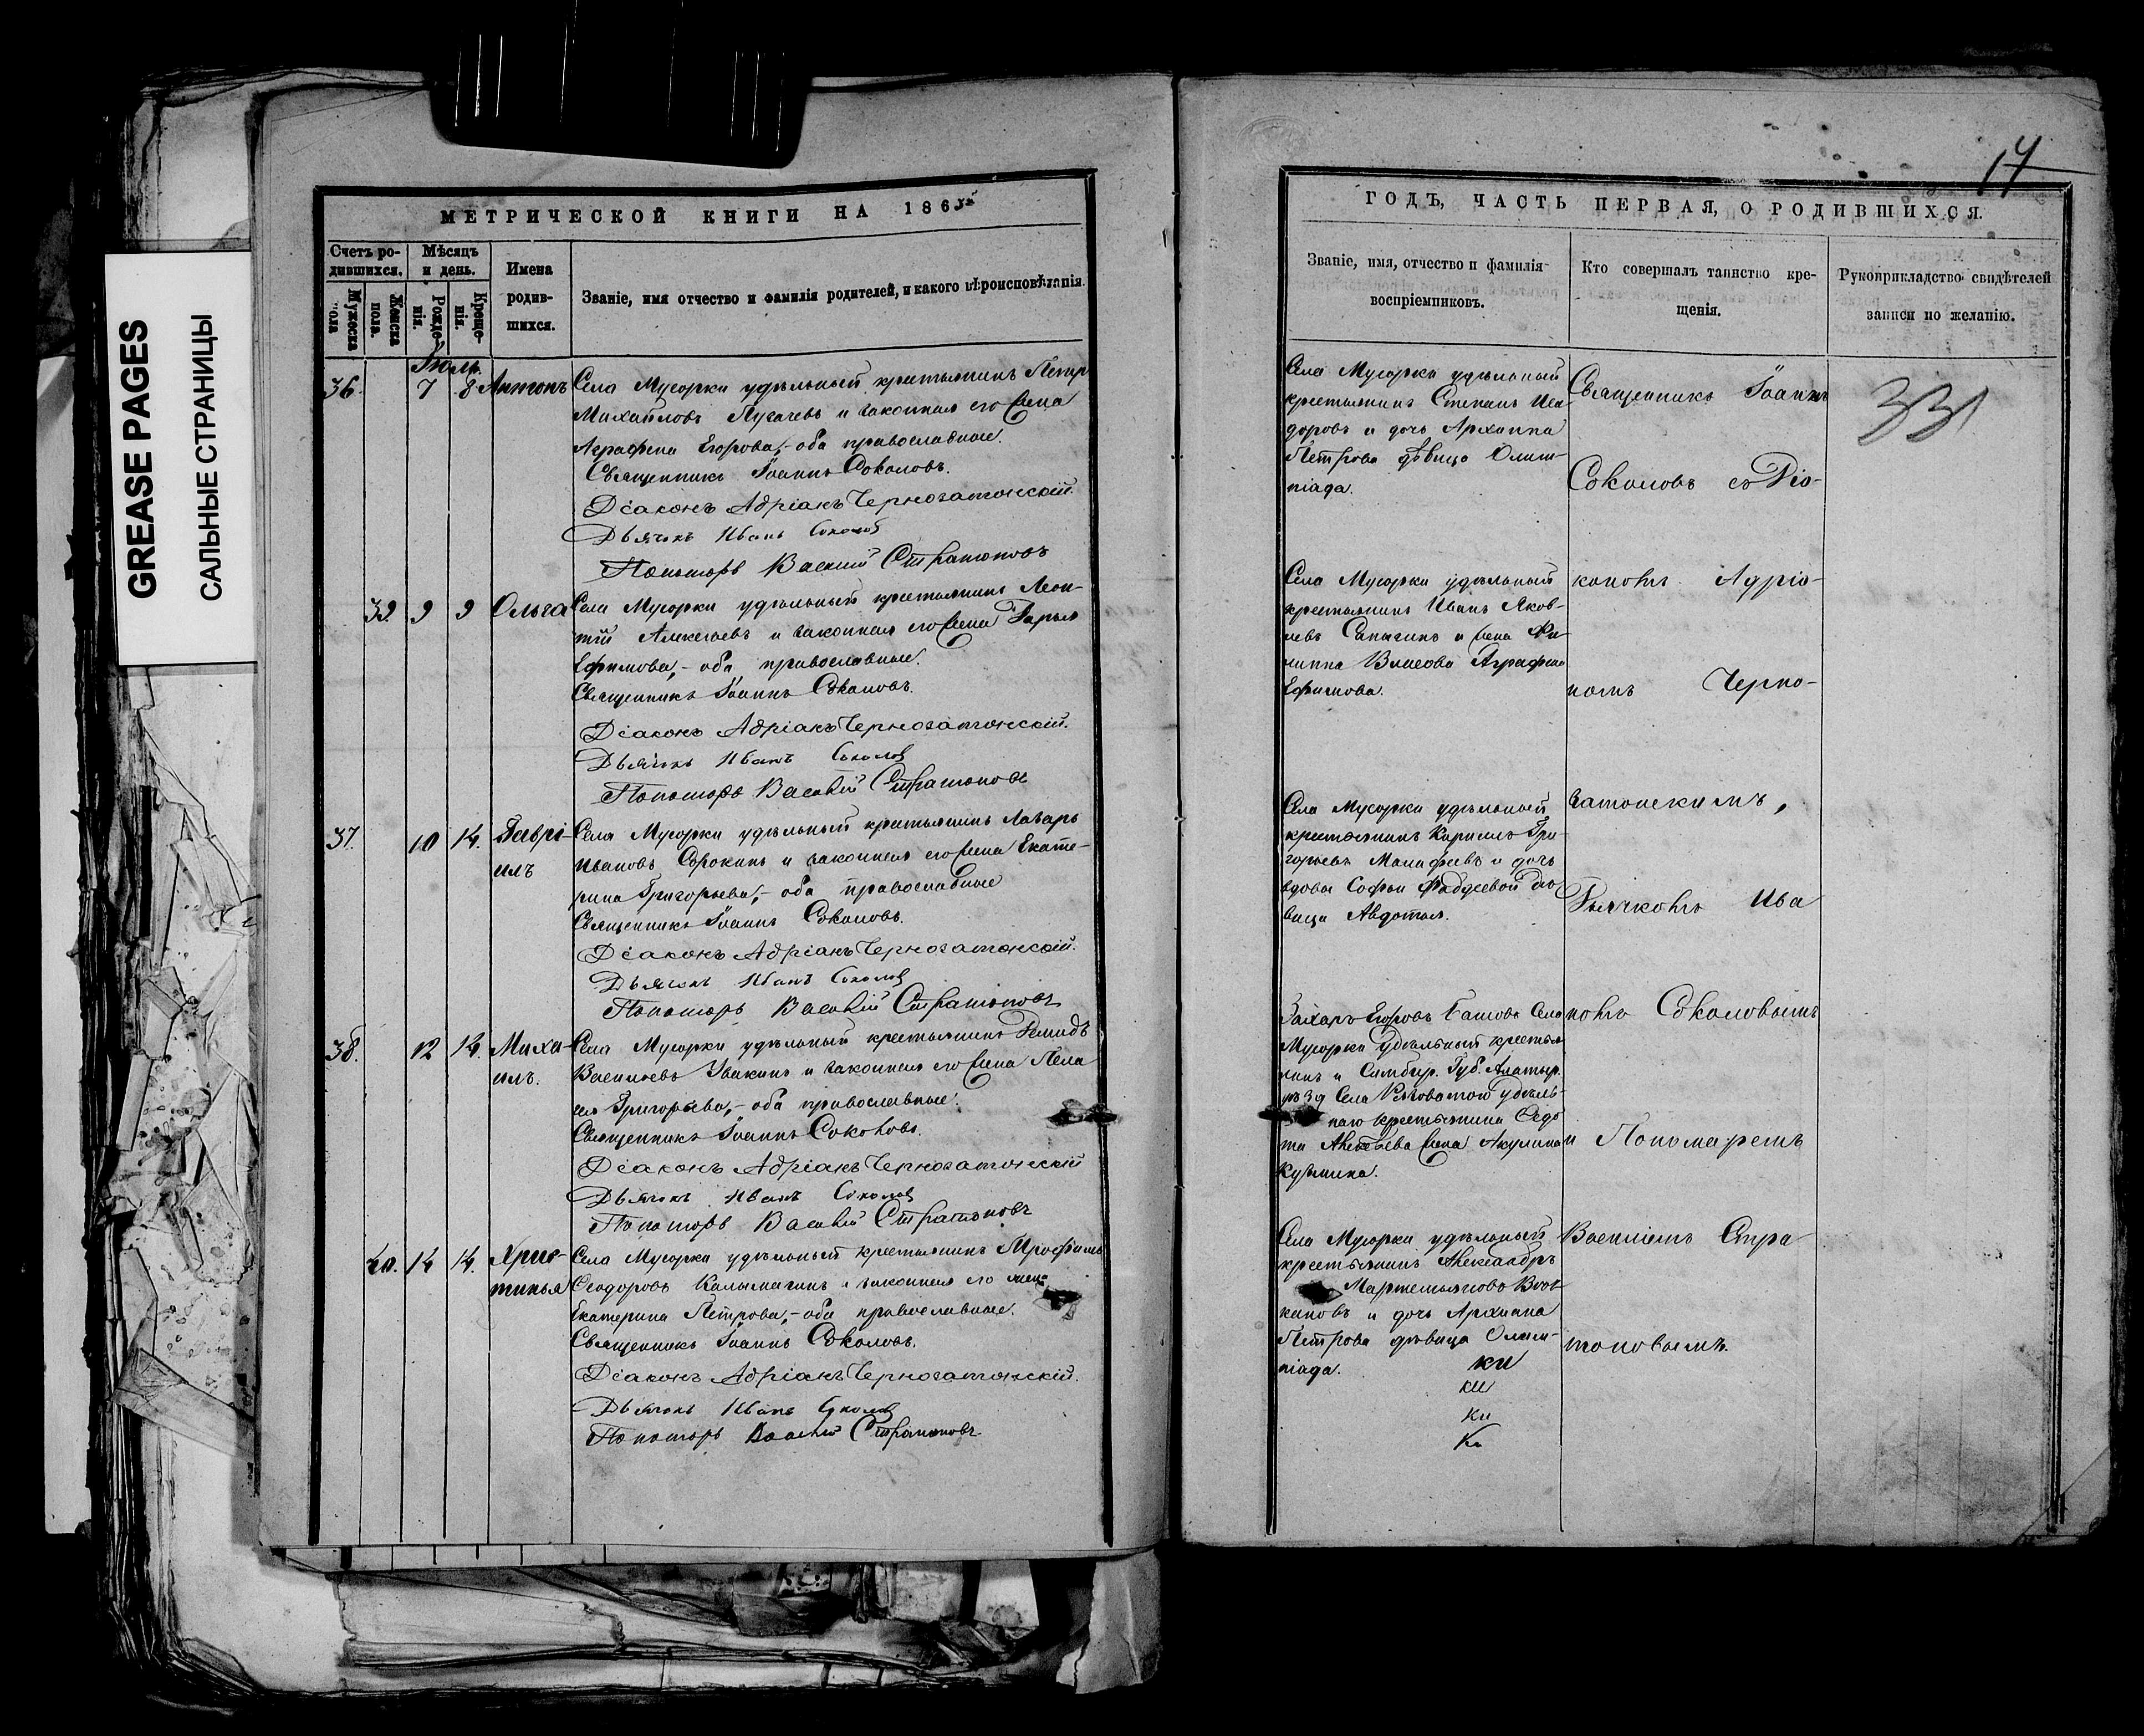 GREASE PAGES
САЛЬНЫЕ СТРАНИЦЫ
МЕТРИЧЕСКОЙ КНИГИ НА 186
Счетъ ро-
дившихся.
Мужеска
пола
Женска
пола.
Мѣсяцъ
и день.
Рожде-
нія.
Креще-
нія.
Имена
родив-
шихся.
Званіе, имя отчество и фамилія родителей, и какого вѣроисповѣданія.
Іюль.
36. 7 8 Антонъ Села Мусорки удѣльный крестьянинъ Петръ
Михайловъ Пугачевъ и законная его жена
Аграфена Егорова, – оба православные.
Священникъ Іоаннъ Соколовъ.
Діаконъ Адріанъ Черногатонскій.
Дьячокъ Иванъ Соколов
Пономарь Василій Стратоновъ
39. 9 9 Ольга Села Мусорки удѣльный крестьянинъ Леон-
тій Алексѣевъ и законная его жена Дарья
Ефимова, – оба православные.
Священникъ Іоаннъ Соколовъ.
Діаконъ Адріанъ Черногатонскій.
Дьячокъ Иванъ Соколов
Пономарь Василій Стратоновъ
37. 10 14. Гаврі-
илъ
Села Мусорки удѣльный крестьянинъ Лазарь
Ивановъ Сорокинъ и законная его жена Екате-
рина Григорьева, – оба православные
Священникъ Іоаннъ Соколовъ.
Діаконъ Адріанъ Черногатонскій.
Дьячокъ Иванъ Соколов
Пономарь Василій Стратоновъ
38. 12 14. Миха-
илъ.
Села Мусорки удѣльный крестьянинъ Демидъ
Васильевъ Увакинъ и законная его жена Пела
гея Григорьева, – оба православные.
Священникъ Іоаннъ Соколовъ.
Діаконъ Адріанъ Черногатонскій
Дьячокъ Иванъ Соколов
Пономарь Василій Стратоновъ
40. 14 14. Хрис-
тинья
Села Мусорки удѣльный крестьянинъ Трофимъ
Ѳеодоровъ Калымагинъ и законная его жена
Екатерина Петрова, – оба православные.
Священникъ Іоаннъ Соколовъ.
Діаконъ Адріанъ Черногатонскій.
Дьячокъ Иванъ Соколов
Пономарь Василій Стратоновъ
17
ГОДЪ, ЧАСТЬ ПЕРВАЯ, О РОДИВШИХСЯ.
Званіе, имя, отчество и фамилія
воспріемниковъ.
Кто совершалъ таинство кре-
щенія.
Рукоприкладство свидѣтелей
записи по желанію.
331
Села Мусорки удѣльный
крестьянинъ Степанъ Иси-
доровъ и дочь Архиппа
Петрова дѣвица Олим-
піада.
Села Мусорки удѣльный
крестьянинъ Иванъ Яков-
левъ Сапагинъ и жена Фи-
липпа Власова Аграфена
Ефимова.
Села Мусорки удѣльный
крестьянинъ Кириллъ Гри-
горьевъ Манафеевъ и дочь
вдовы Софьи Фаддеевой дѣ-
вица Авдотья.
Захаръ Егоровъ Села
Мусорки Удѣльный крестья-
нинъ и Симбир. Губ. Алатыр.
Села удѣль-
наго крестьянина Ѳедо
та жена Акулина
Кузмина.
Села Мусорки удѣльный
крестьянинъ Александръ
Мартемьяновъ
киновъ и дочь Архиппа
Петрова дѣвица Олим-
піада.
ки
ки
ки
ки
Священникъ Іоаннъ
Соколовъ съ Діо-
кономъ Адріа-
номъ Черно-
гатонскимъ,
Дьячкомъ Ива
номъ Соколовымъ
и Пономаремъ
Василіемъ Стра
тоновымъ.